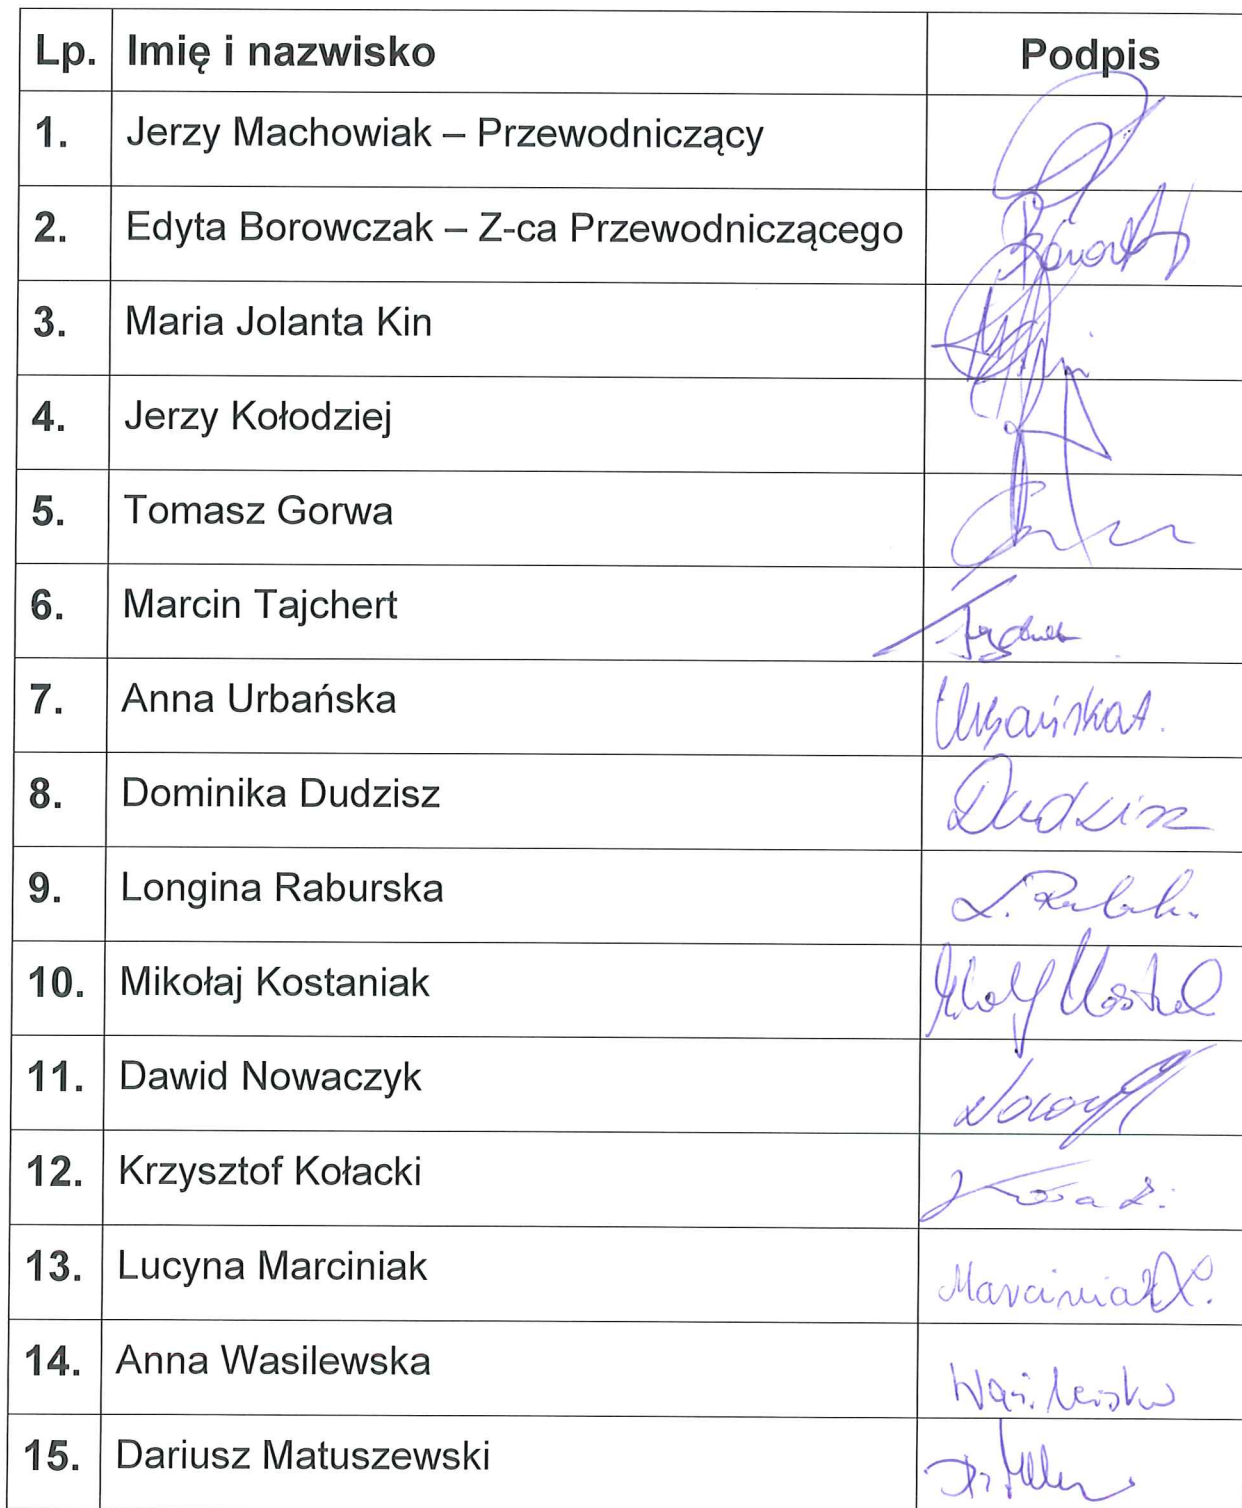 Lp. Imię i nazwisko Podpis
1. Jerzy Machowiak – Przewodniczący
2. Edyta Borowczak – Z-ca Przewodniczącego
3. Maria Jolanta Kin
4. Jerzy Kołodziej
5. Tomasz Gorwa
6. Marcin Tajchert
7. Anna Urbańska Urbańska A.
8. Dominika Dudzisz Dudzisz
9. Longina Raburska
10. Mikołaj Kostaniak
11. Dawid Nowaczyk
12. Krzysztof Kołacki
13. Lucyna Marciniak Marciniak L.
14. Anna Wasilewska
15. Dariusz Matuszewski